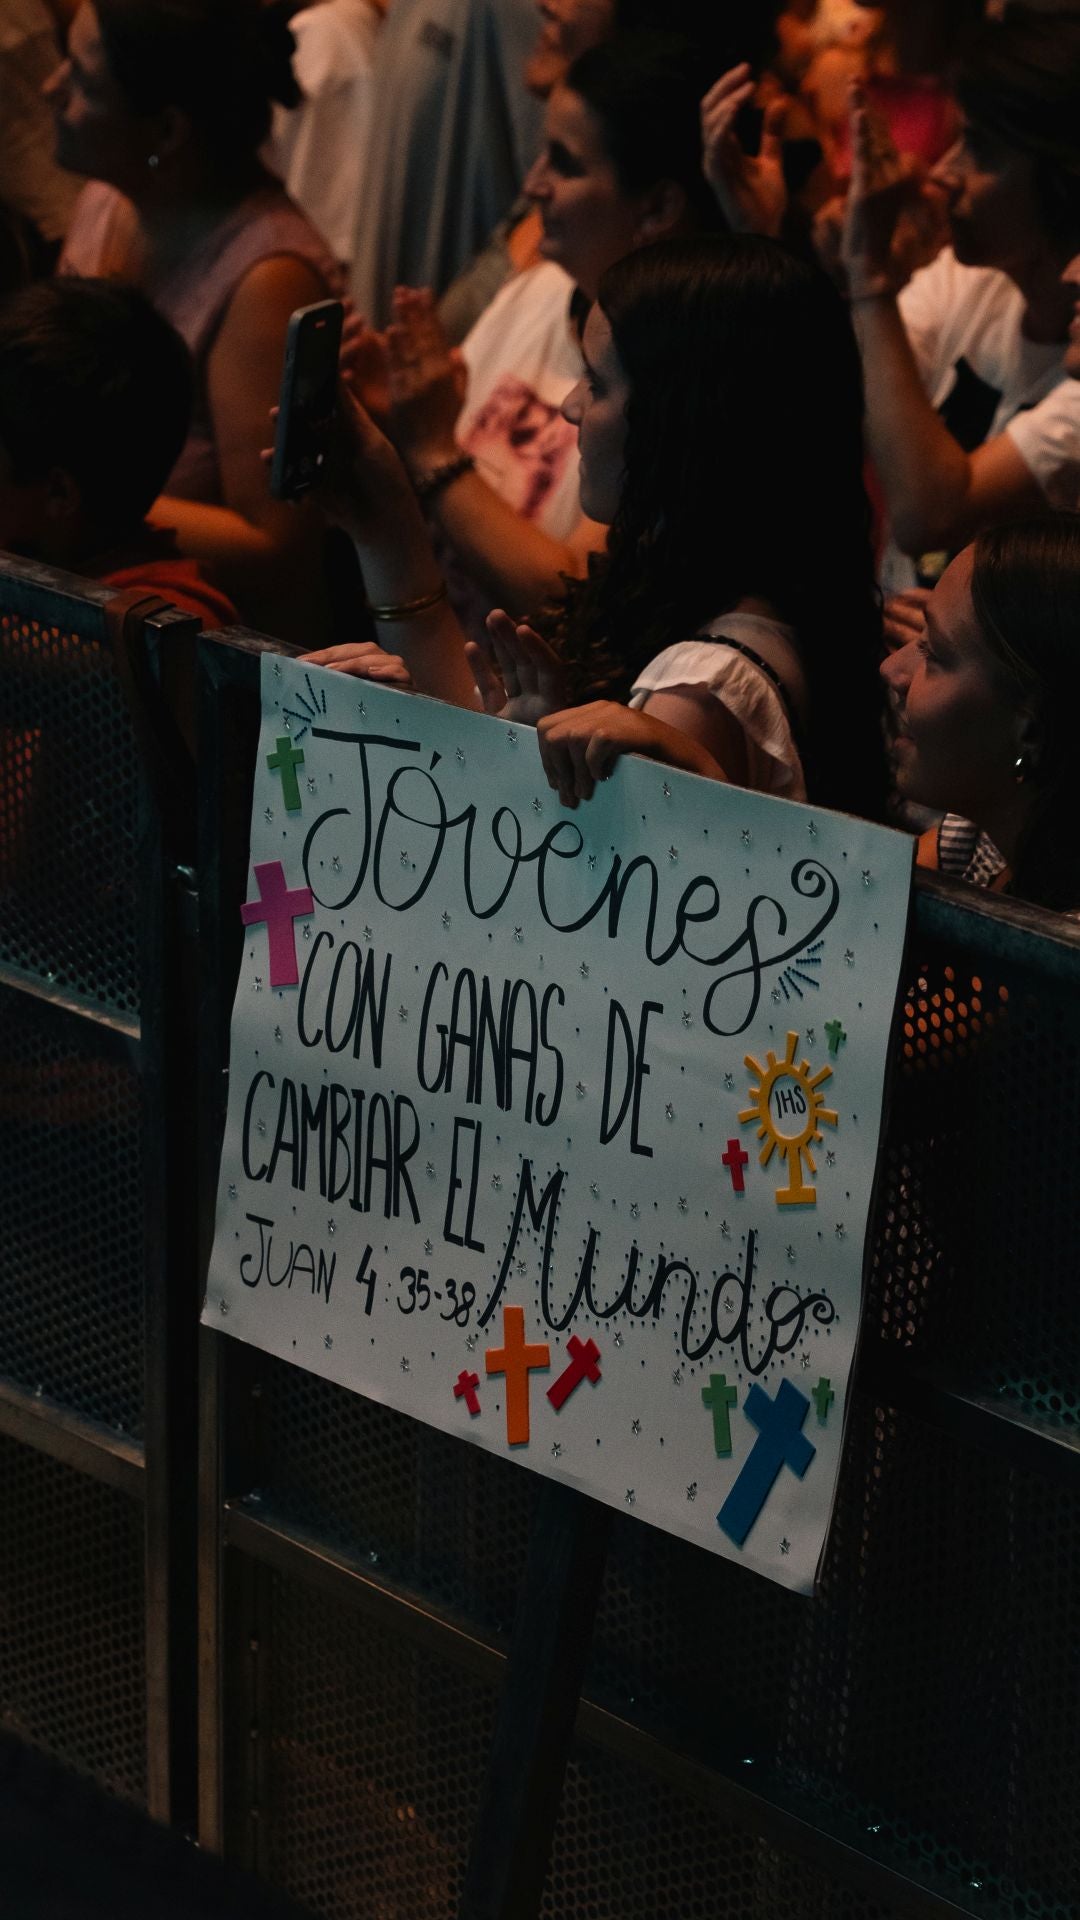 Jóvenes
CON GANAS DE
CAMBIAR EL Mundo
JUAN 4:35-38
IHS